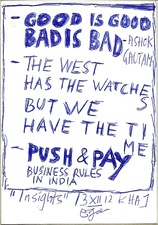 - GOOD IS GOOD
BAD IS BAD - ASHOK
GAUTAM
- THE WEST
HAS THE WATCHES
BUT WE
HAVE THE TIME
- PUSH & PAY
BUSINESS RULES
IN INDIA
"Insights" 13 XII 12 KHAJ